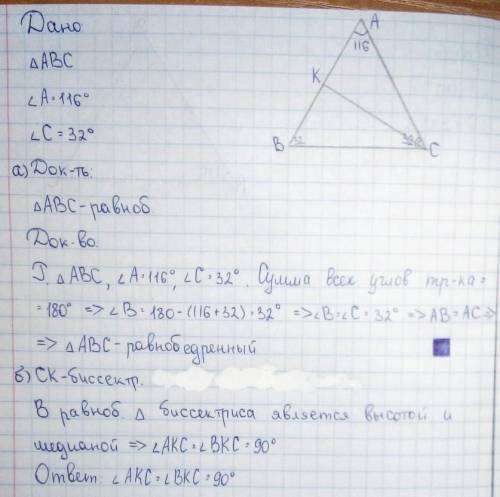 Дано
△ABC
∠A=116°
∠C=32°
а) Док-ть:
△ABC-равноб.
Док-во.
I. △ABC, ∠A=116°, ∠C=32°. Сумма всех углов тр-ка=
=180° => ∠B=180-(116+32)=32° => ∠B=∠C=32° => AB=AC =>
=> △ABC-равнобедренный
б) CK-биссектр.
В равноб. △ биссектриса является высотой и
медианой => ∠AKC=∠BKC=90°
Ответ: ∠AKC=∠BKC=90°
A
116
K
B
C